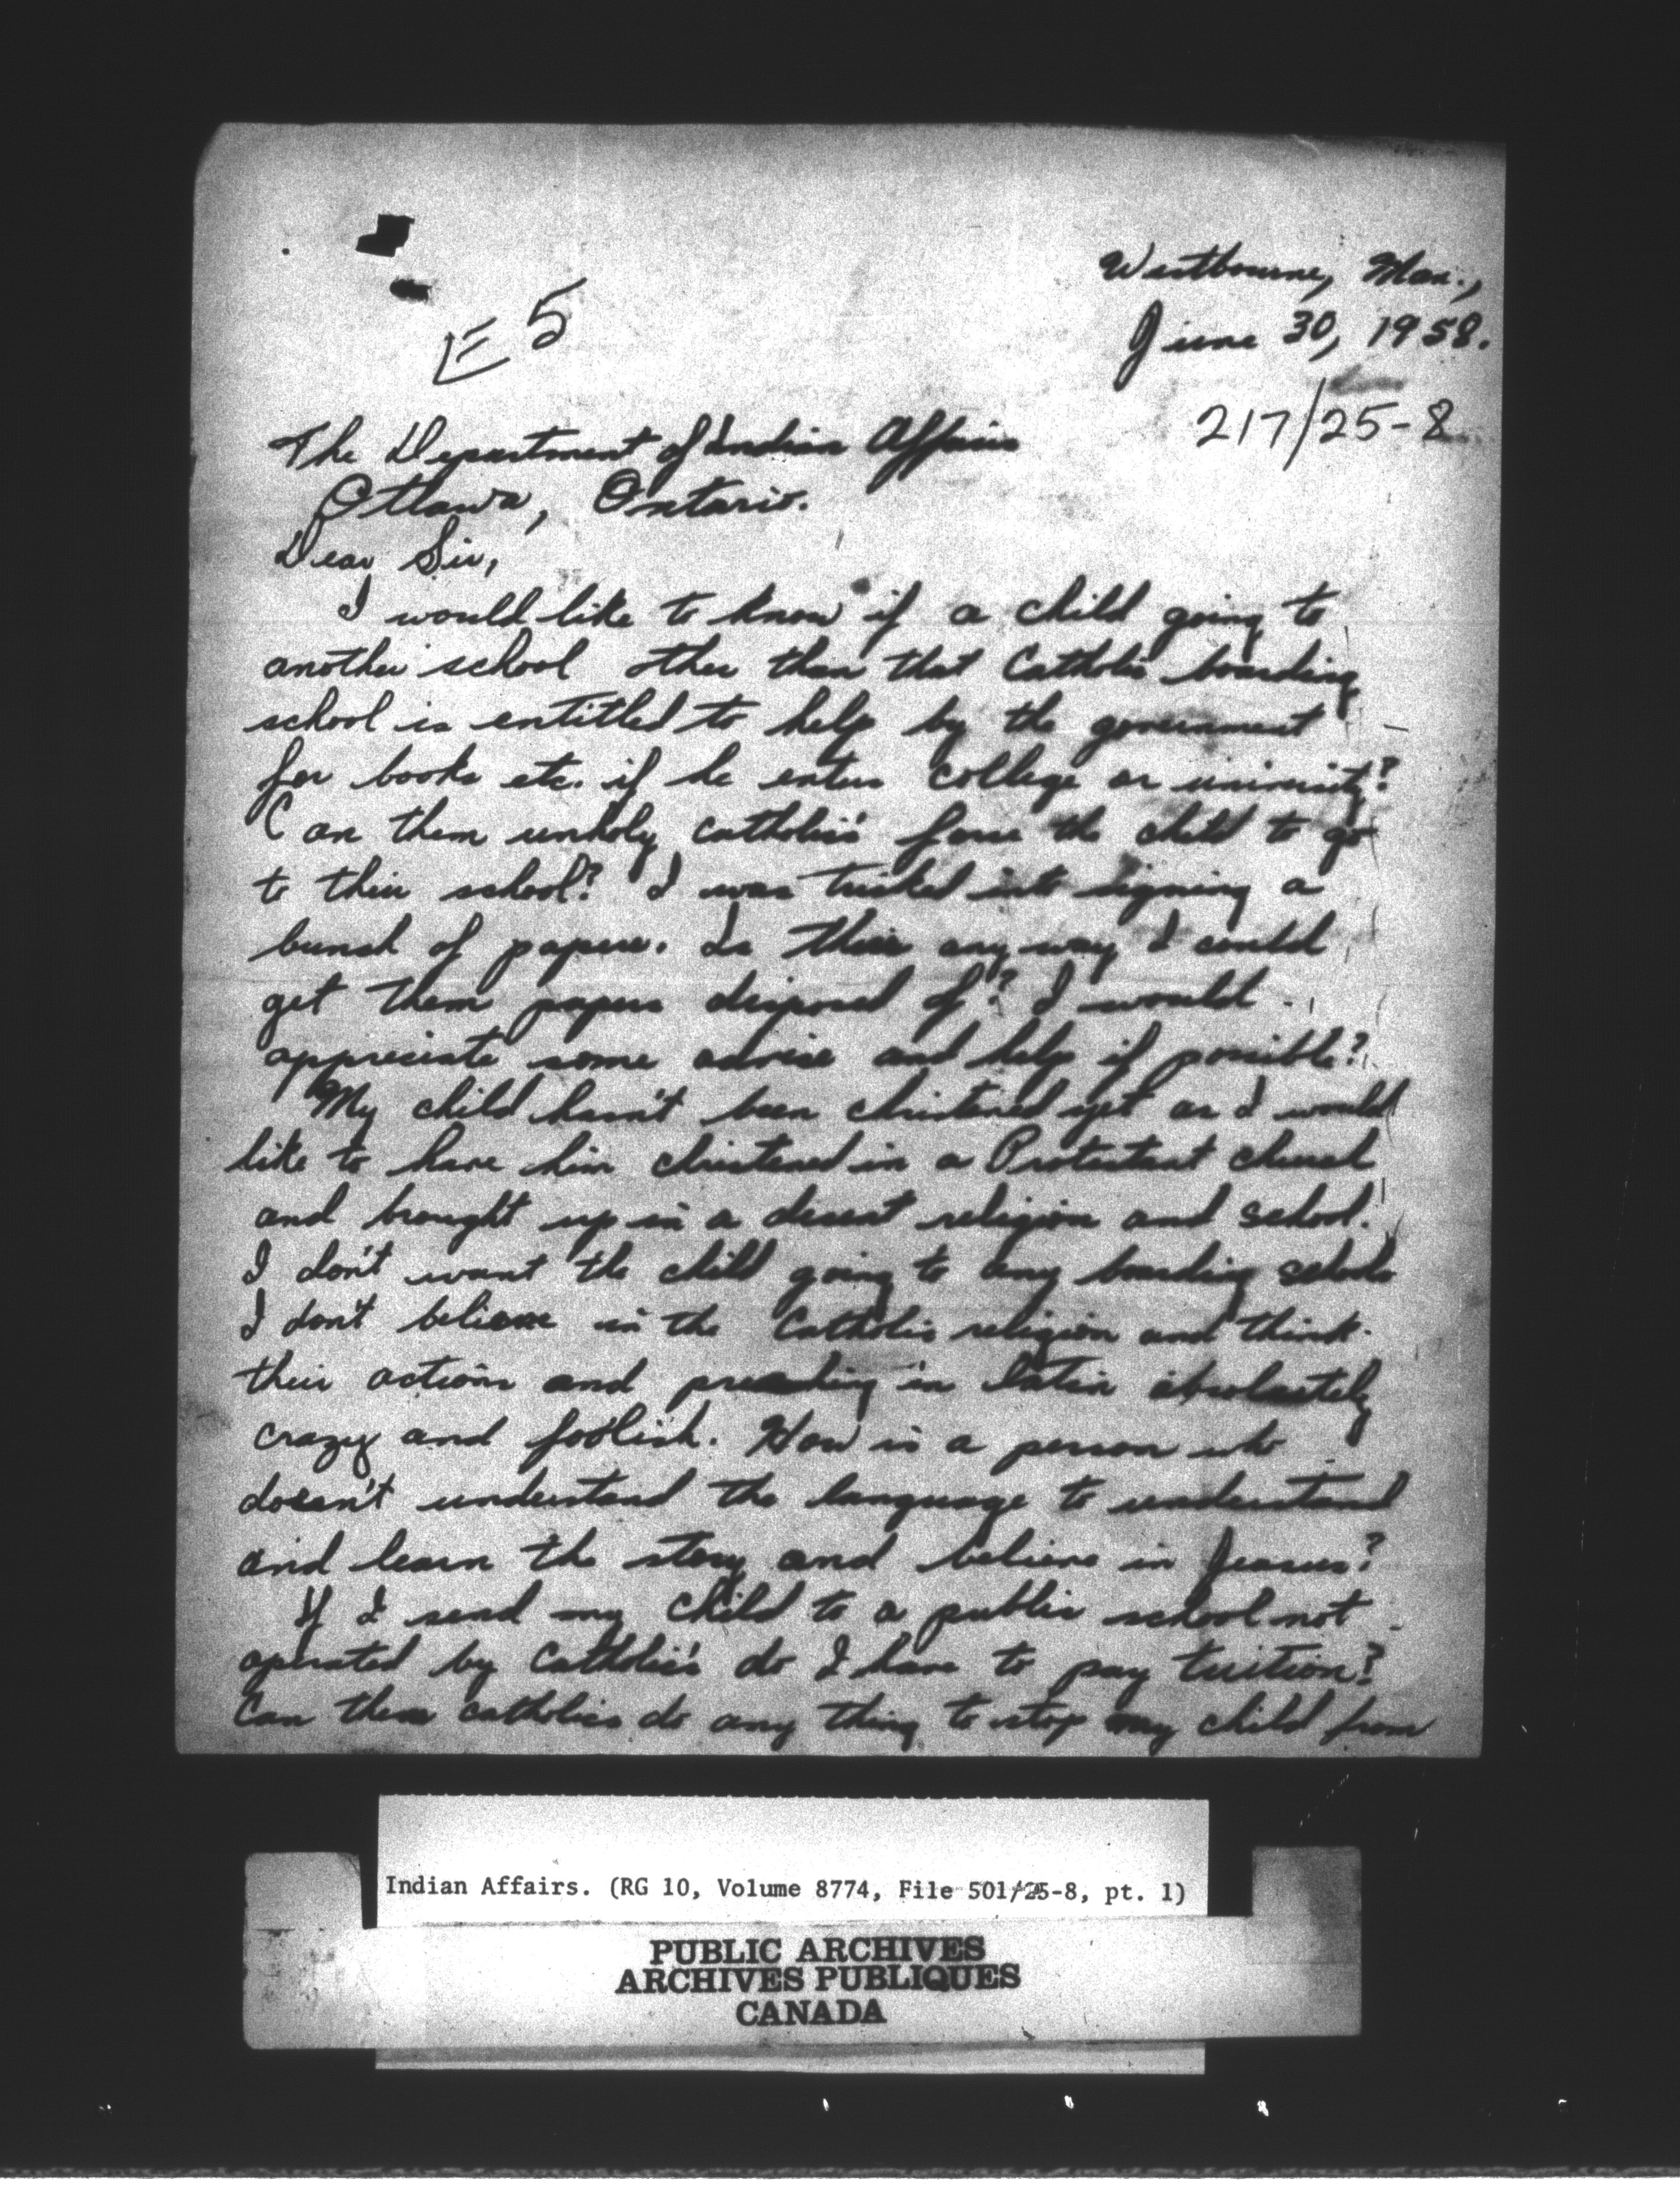 Westbourne, Man.,
E 5
June 30, 1958.
217/25-8
The Department of Indian Affairs
Ottawa, Ontario.
Dear Sir,
I would like to know if a child going to
another school other than that Catholic boarding
school is entitled to help by the government
for books etc. if he enters college or university?
Can them unholy catholic's force the child to go
to their school? I was tricked into signing a
bunch of papers. Is there any way I could
get them papers disposed of? I would
appreciate some advise and help if possible?
My child hasn't been christened yet as I would
like to have him christened in a Protestant church
and brought up in a decent religion and school.
I don't want the child going to any boarding schools
I don't believe in the Catholic religion and think
their actions and preaching in latin absolutely
crazy and foolish. How is a person who
doesn't understand the language to understand
and learn the story and believe in Jesus?
If I send my child to a public school not
operated by Catholic's do I have to pay tuition?
Can them catholics do any thing to stop my child from
Indian Affairs. (RG 10, Volume 8774, File 501/25-8, pt. 1)
PUBLIC ARCHIVES
ARCHIVES PUBLIQUES
CANADA